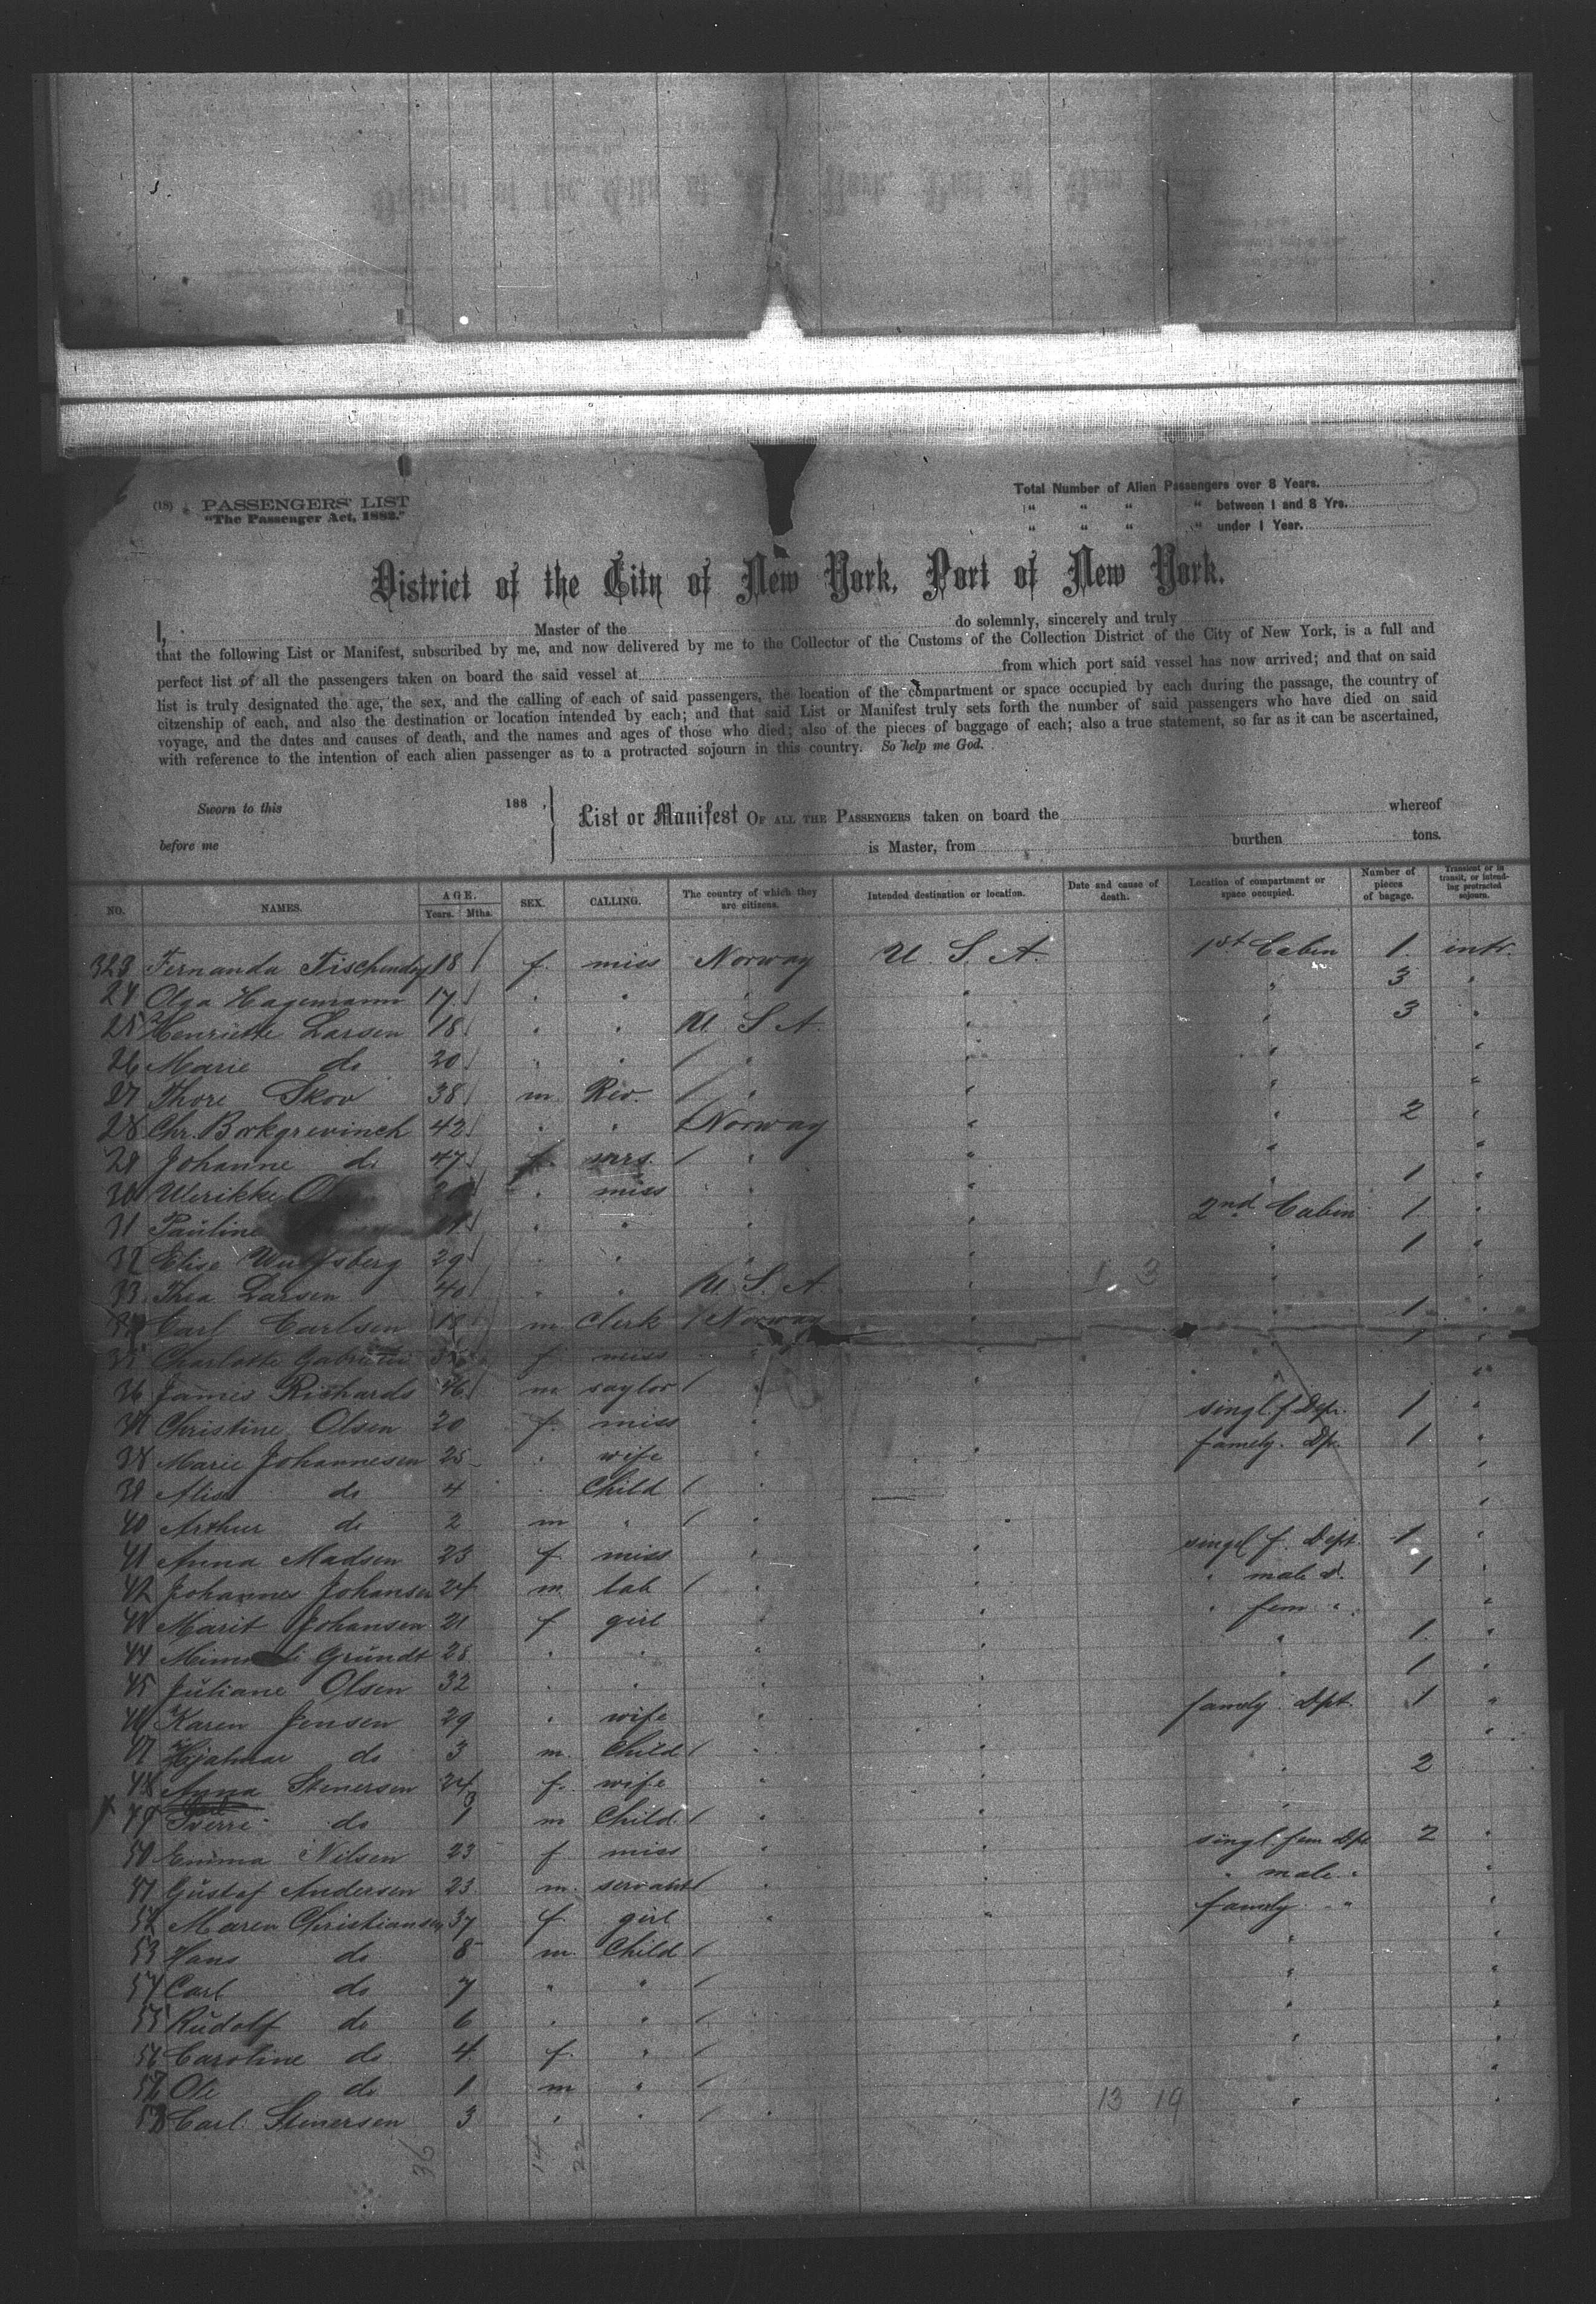 (18) PASSENGERS' LIST
"The Passenger Act, 1882."
Total Number of Alien Passengers over 8 Years.
" " " " between 1 and 8 Yrs.
" " " " under 1 Year.
District of the City of New York, Port of New York.
I, Master of the do solemnly, sincerely and truly
that the following List or Manifest, subscribed by me, and now delivered by me to the Collector of the Customs of the Collection District of the City of New York, is a full and
perfect list of all the passengers taken on board the said vessel at from which port said vessel has now arrived; and that on said
list is truly designated the age, the sex, and the calling of each of said passengers, the location of the compartment or space occupied by each during the passage, the country of
citzenship of each, and also the destination or location intended by each; and that said List or Manifest truly sets forth the number of said passengers who have died on said
voyage, and the dates and causes of death, and the names and ages of those who died; also of the pieces of baggage of each; also a true statement, so far as it can be ascertained,
with reference to the intention of each alien passenger as to a protracted sojourn in this country. So help me God.
Sworn to this 188 ,
before me
List or Manifest OF ALL THE PASSENGERS taken on board the whereof
is Master, from burthen tons.
NO. NAMES. AGE. Years. Mths. SEX. CALLING. The country of which they are citizens. Intended destination or location. Date and cause of death. Location of compartment or space occupied. Number of pieces of bagage. Transient or in transit, or intending protracted sojourn.
323 Fernanda 18 f. miss Norway U. S. A. 1st Cabin 1 intr.
24 Olga Hagemann 17 " " " " " 3 "
25 Henriette Larsen 18 " " U S A " " 3 "
26 Marie do 20 " " " " " "
27 Thore Skov 38 m Rev. " " " "
28 Chr. Borkgrevinch 42 " " Norway " " 2 "
29 Johanne do 47 f. mrs. " " " "
30 Ulrikke " miss " " 1 "
31 Pauline " " " " 2nd Cabin 1 "
32 Elise Wulfsberg 29 " " " " " 1 "
33 Thea Larsen 40 " " U. S. A. " "
34 Carl Carlsen 18 m clerk Norway " " 1 "
35 Charlotte f miss " " " 1 "
36 James Richards 46 m saylor " " " "
37 Christine Olsen 20 f. miss " singl. f Dpt. 1 "
38 Marie Johannesen 25 " wife " " famely. Dp. 1 "
39 do 4 " Child " "
40 Arthur do 2 m " " " "
41 Anna Madsen 23 f. miss " " singel f. Dept. 1 "
42 Johannes Johansen 24 m. lab " " " male d. 1 "
43 Marit Johansen 21 f girl " " " fem " "
44 Grundt 28 " " " " " 1 "
45 Juliane Olsen 32 " " " " " 1 "
46 Karen Jensen 29 " wife " " famely Dpt. 1 "
47 Hjalmar do 3 m. Child " " "
48 Anna Stenersen 24 f. wife " " " 2
49 Sverre do m Child " " "
50 Emma Nilsen 23 f miss " " singl. fem Dpt 2 "
51 Gustaf Andersen 23 m. servant " " " male " "
52 Maren Christiansen 37 f. girl " " famely " "
53 Hans do 8 m Child " "
54 Carl do 7 " " " "
55 Rudolf do 6 " " " "
56 Caroline do 4 f. " " "
57 Ole do 1 m " "
58 Carl Stenersen 3 " " " " " "
13 19
36
14
22